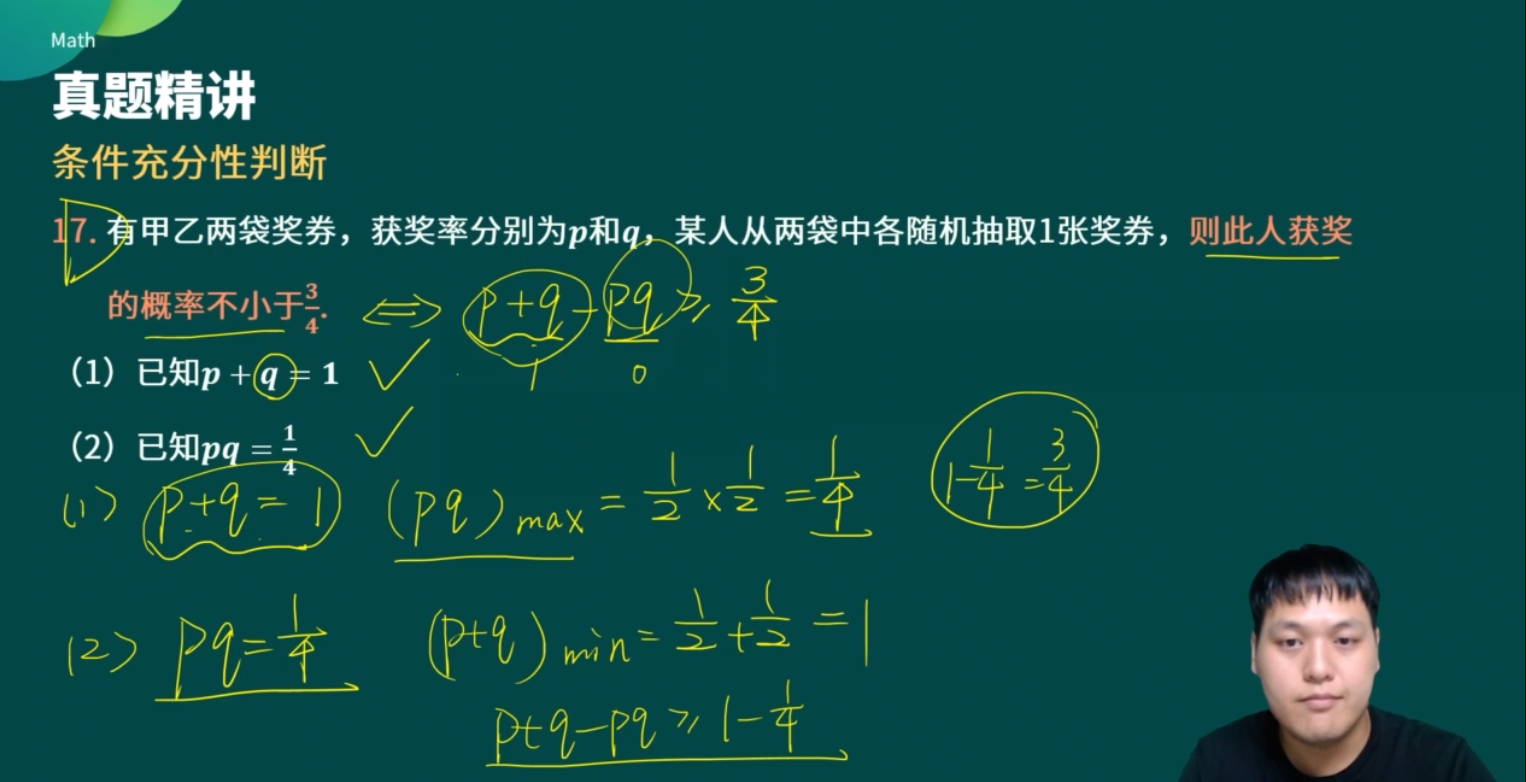 Math
真题精讲
条件充分性判断
17. 有甲乙两袋奖券，获奖率分别为p和q，某人从两袋中各随机抽取1张奖券，则此人获奖
的概率不小于3/4. ⇔ p+q-pq ≥ 3/4
（1）已知p + q = 1 ✓ 1 0
（2）已知pq = 1/4 ✓
(1) p+q=1 (pq)max = 1/2 × 1/2 = 1/4 1-1/4=3/4
(2) pq=1/4 (p+q)min = 1/2+1/2 = 1
p+q-pq ≥ 1-1/4